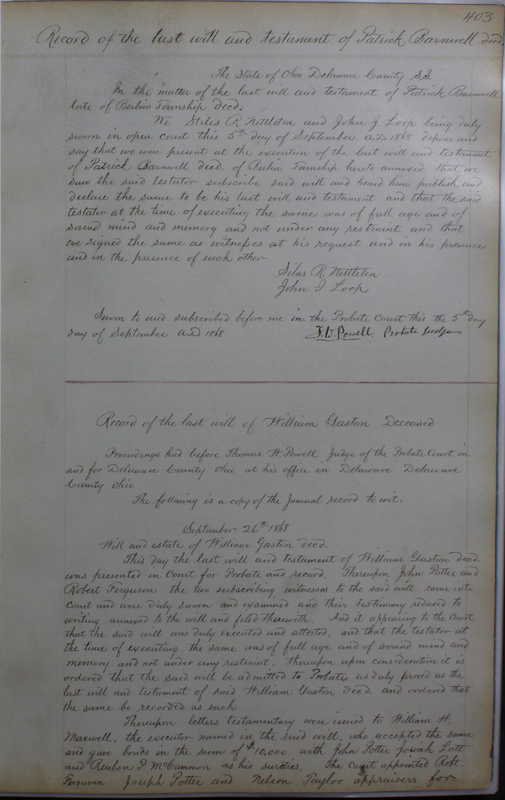 403
Record of the last will and testament of Patrick Barnwell decd.
The State of Ohio Delaware County SS.
In the matter of the last will and testament of Patrick Barnwell
late of Berlin Township decd.
We Stiles R Nettleton and John J Loop being duly
sworn in open court this 5th day of September A.D 1868 depose and
say that we were present at the execution of the last will and testament
of Patrick Barnwell decd. of Berlin Township hereto annexed that we
saw the said testator subscribe said will and heard him publish and
declare the same to be his last will and testament and that the said
testator at the time of executing the same was of full age and of
sound mind and memory and not under any restraint and that
we signed the same as witnesses at his request and in his presence
and in the presence of each other
Silas R Nettleton
John J Loop
Sworn to and subscribed before me in the Probate Court this the 5th day
day of September A.D 1868
T.W. Powell Probate Judge
Record of the last will of William Gaston Deceased
Proceedings had before Thomas W. Powell Judge of the Probate Court in
and for Delaware County Ohio at his office in Delaware Delaware
County Ohio
The following is a copy of the Journal record to wit.
September 26th 1868
Will and estate of William Gaston decd.
This day the last will and testament of William Gaston decd.
was presented in Court for Probate and record. Thereupon John Potter and
Robert Ferguson the two subscribing witnesses to the said will came into
Court and were duly sworn and examined and their testimony reduced to
writing annexed to the will and filed therewith. And it appearing to the Court
that the said will was duly executed and attested, and that the testator at
the time of executing the same was of full age and of sound mind and
memory and not under any restraint. Thereupon upon consideration it is
ordered that the said will be admitted to Probate as duly proved as the
last will and testament of said William Gaston decd. and ordered that
the same be recorded as such
Thereupon letters testamentary were issued to William H.
Maxwell, the executor named in the said will, who accepted the same
and gave bonds in the sum of $10,000 with John Potter Josiah Lott
and Reuben P McCammon as his sureties, The Court appointed Robt
Ferguson Joseph Potter and Nelson Taylor appraisers for